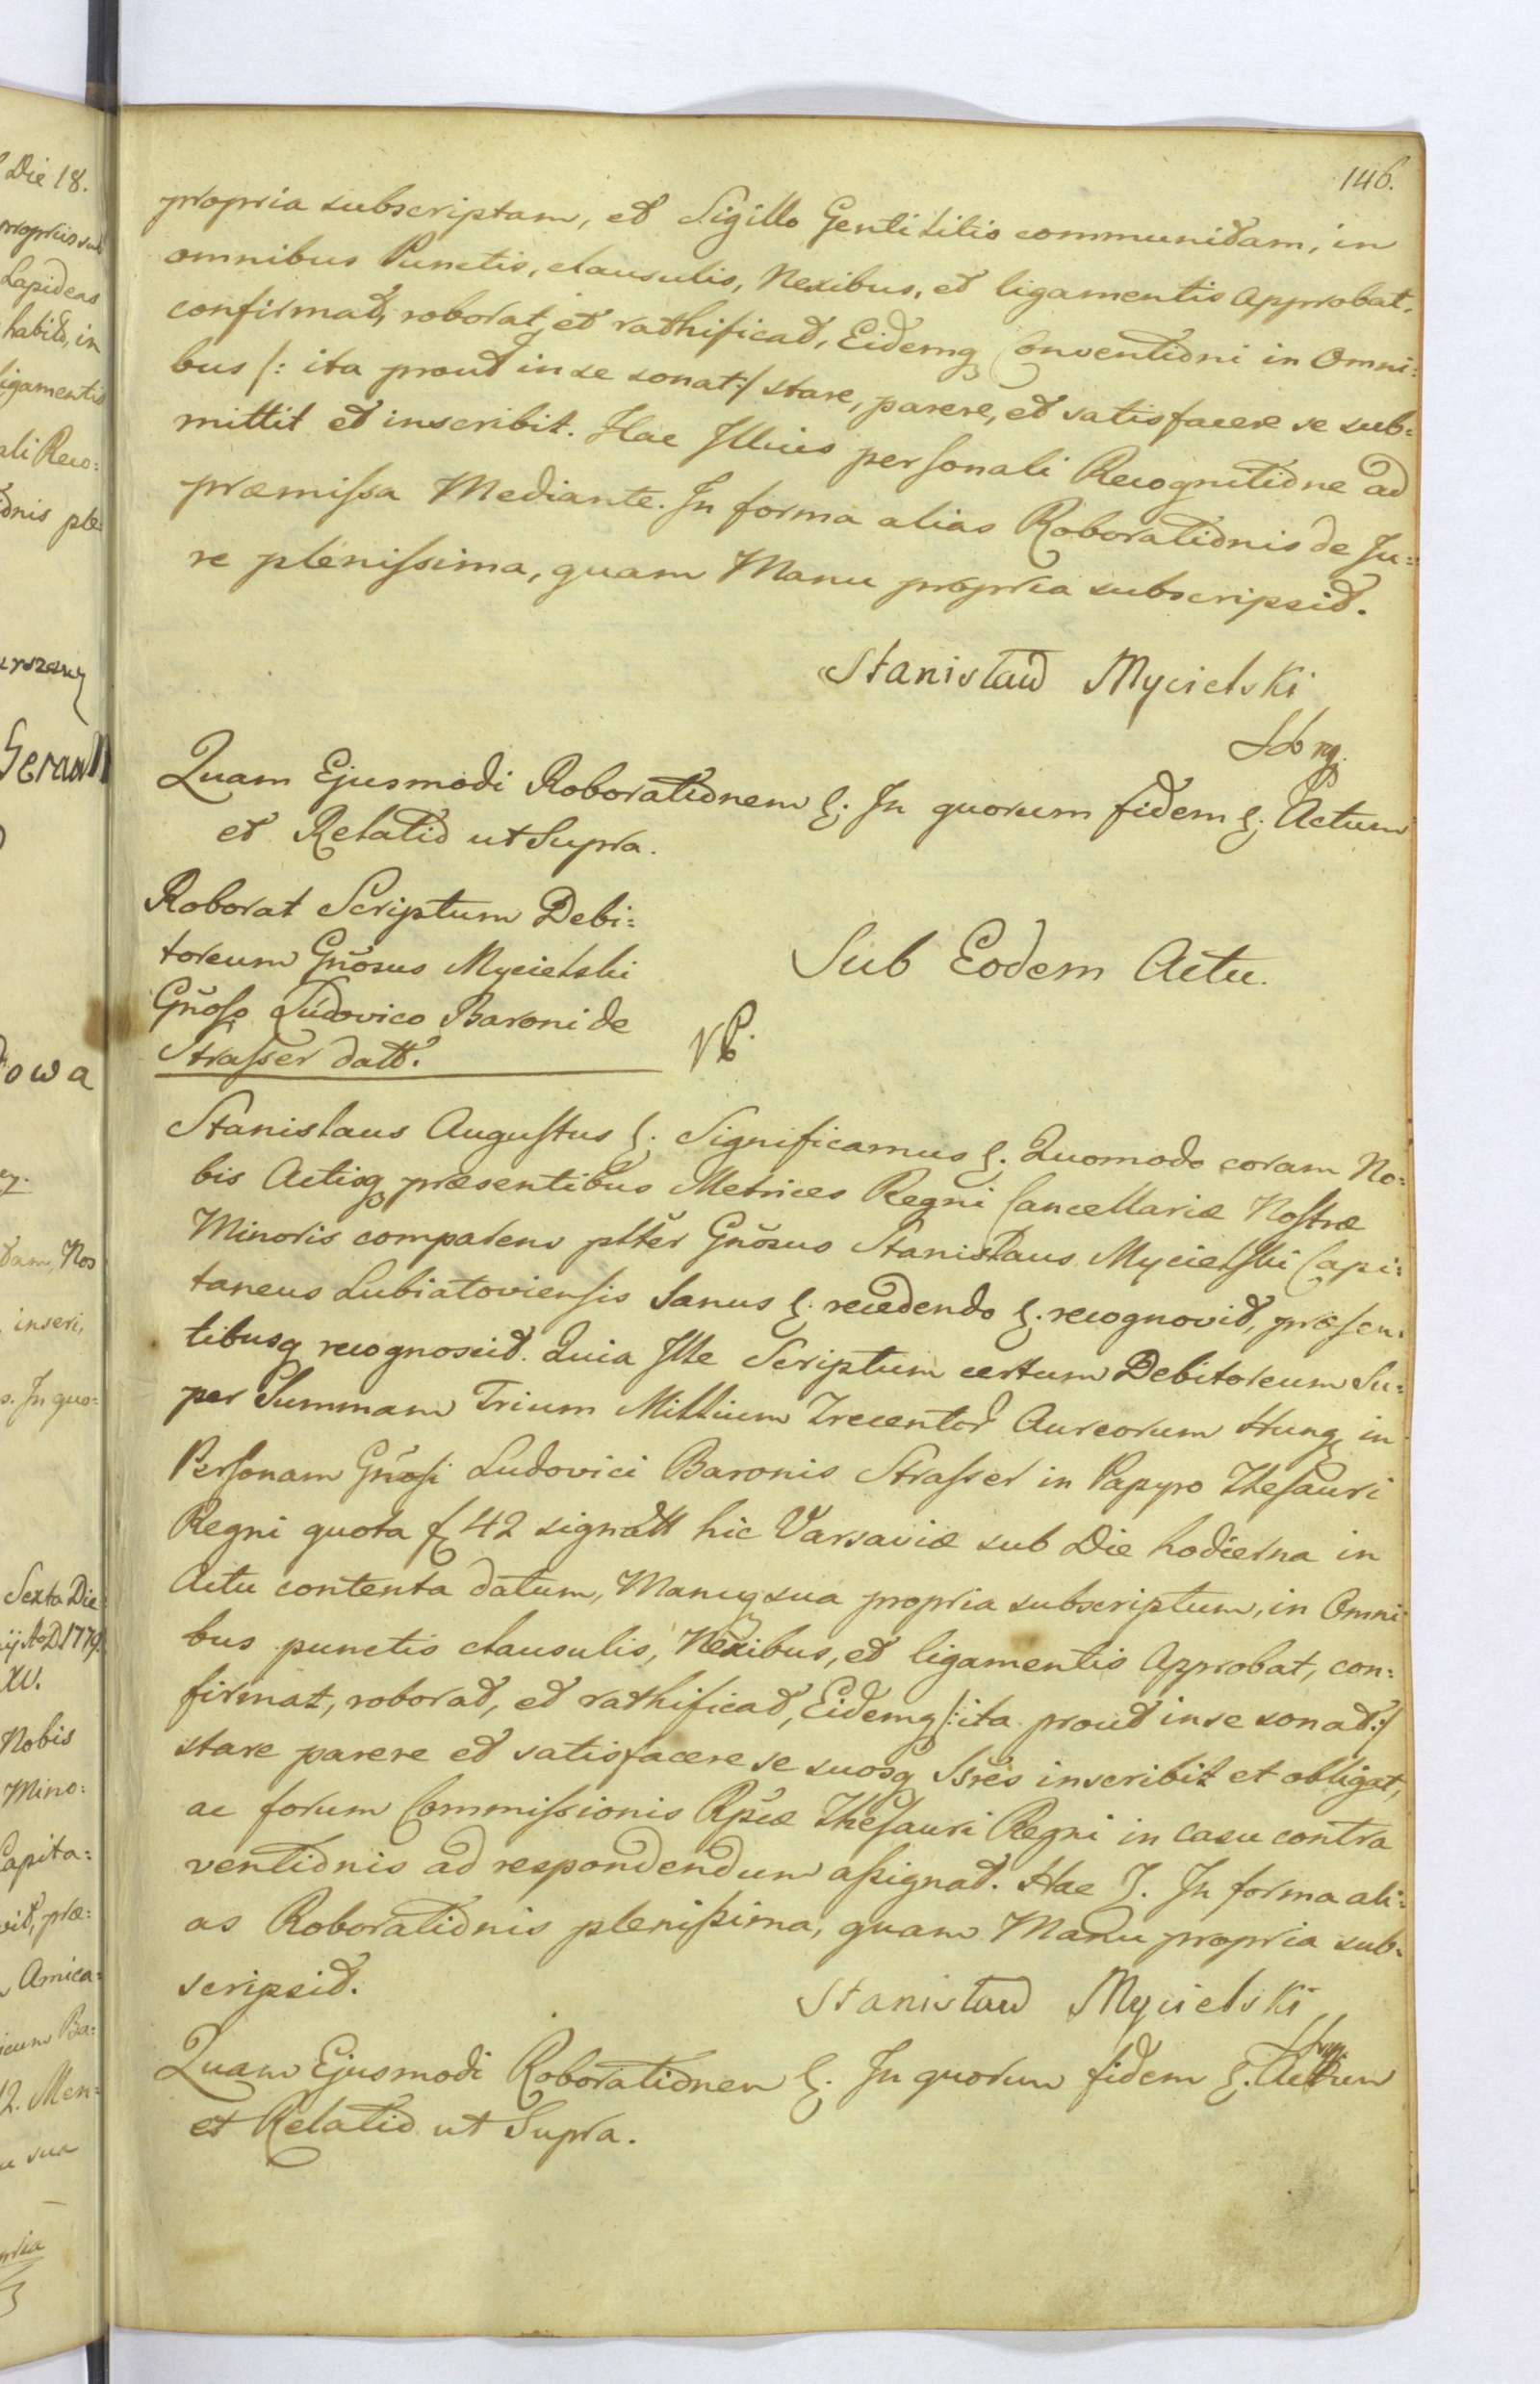 146.
propria subscriptam, et Sigillo Gentilitio communitam, in
omnibus Punctis, clausulis, Nexibus, et ligamentis Approbat,
confirmat, roborat, et rathificat, Eidemq Conventioni in Omni=
bus /: ita prout in se sonat :/ stare, parere, et satisfacere se sub=
mittit et inscribit. Hac Illius personali Recognitione ad
præmissa Mediante. In forma alias Roborationis de Ju=
re plenissima, quam Manu propria subscripsit.
Stanisław Mycielski
Quam Ejusmodi Roborationem &. In quorum fidem &. Actum
et Relatio ut Supra.
Roborat Scriptum Debi=
toreum Gnosus Mycielski
Gnoso Ludovico Baroni de
Strasser datt.
Sub Eodem Actu.
Stanislaus Augustus &. Significamus &. Quomodo coram No=
bis Actisq præsentibus Metrices Regni Cancellariæ Nostræ
Minoris comparens plter Gnosus Stanislaus Mycielski Capi=
taneus Lubiatoviensis Sanus &. recedendo &. recognovit, præsen=
tibusq recognoscit. Quia Ille Scriptum certum Debitoreum Su=
per Summam Trium Millium Trecentor Aureorum Hung, in
Personam Gnosi Ludovici Baronis Strasser in Papyro Thesauri
Regni quota f 42 signatt hic Varsaviæ sub Die hodierna in
Actu contenta datum, Manuq sua propria subscriptum, in Omni
bus punctis clausulis, Nexibus, et ligamentis Approbat, con=
firmat, roborat, et rathificat, Eidemq /: ita prout in se sonat :/
stare parere et satisfacere se suosq Ssres inscribit et obligat,
ac forum Commissionis Rpcæ Thesauri Regni in Casu contra
ventionis ad respondendum assignat. Hac &. In forma ali=
as Roborationis plenissima, quam Manu propria sub=
scripsit.
Stanisław Mycielski
Quam Ejusmodi Roborationem &. In quorum fidem &. Actum
et Relatio ut Supra.